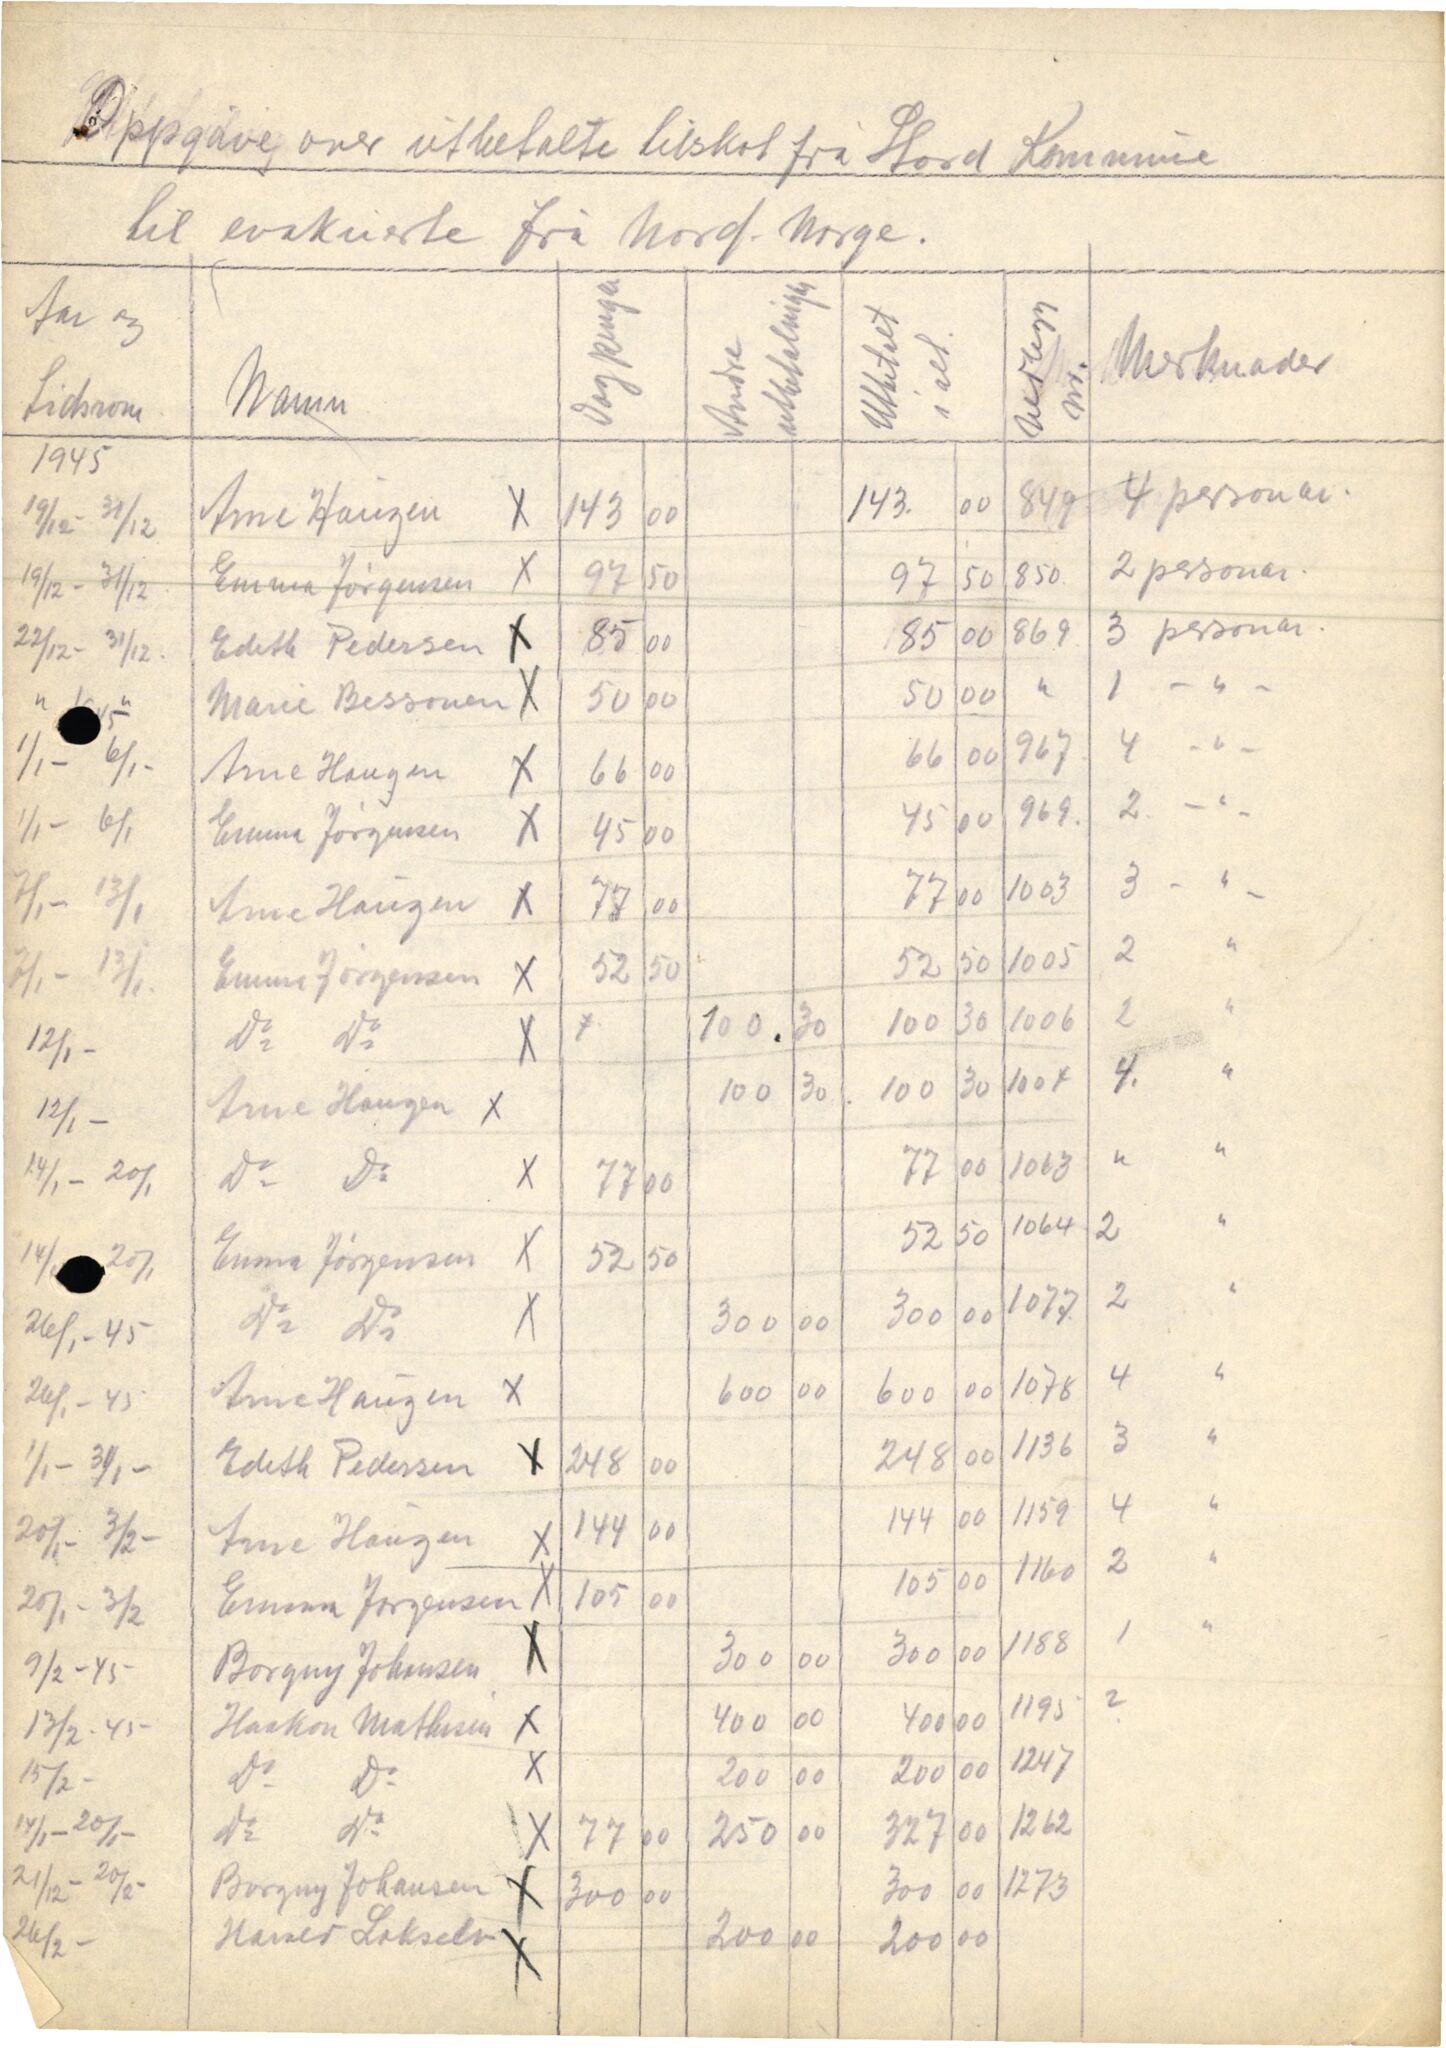 Oppgåve over utbetalte tilskot frå Stord Kommune
til evakuerte frå Nord-Norge.
Aar og Tidsrom Namn Dagpengar Andre utbetalingar Utbetalt i alt. Vedlegg nr. Merknader
1945
19/12 - 31/12 Arne Haugen X 143 00 143. 00 849 4 personar.
19/12 - 31/12 Emma Jørgensen X 97 50 97 50 850. 2 personar.
22/12 - 31/12. Edith Pedersen X 85 00 85 00 869 3 personar.
" " Marie Bessonen X 50 00 50 00 " 1 - " -
1945
1/1 - 6/1 - Arne Haugen X 66 00 66 00 967 4 - " -
1/1 - 6/1 Emma Jørgensen X 45 00 45 00 969. 2. - " -
7/1 - 13/1 Arne Haugen X 77 00 77 00 1003 3 - " -
7/1 - 13/1. Emma Jørgensen X 52 50 52 50 1005 2 "
12/1 - Do Do X 100. 30 100 30 1006 2 "
12/1 - Arne Haugen X 100 30. 100 30 1007 4. "
14/1 - 20/1 Do Do X 77 00 77 00 1063 " "
14/1 20/1 Emma Jørgensen X 52 50 52 50 1064 2 "
26/1 - 45 Do Do X 300 00 300 00 1077. 2 "
26/1 - 45 Arne Haugen X 600 00 600 00 1078 4 "
1/1 - 31/1 - Edith Pedersen X 248 00 248 00 1136 3 "
20/1 - 3/2 - Arne Haugen X 144 00 144 00 1159 4 "
20/1 - 3/2 Emma Jørgensen X 105 00 105 00 1160 2 "
9/2 - 45 - Borgny Johansen X 300 00 300 00 1188 1 "
13/2 - 45 - Haakon Mathisen X 400 00 400 00 1195 ?
15/2 - Do Do X 200 00 200 00 1247
14/1 - 20/1 - Do Do X 77 00 250 00 327 00 1262
21/12 - 20/2 - Borgny Johansen X 300 00 300 00 1273
26/2 - Lakselv X 200 00 200 00